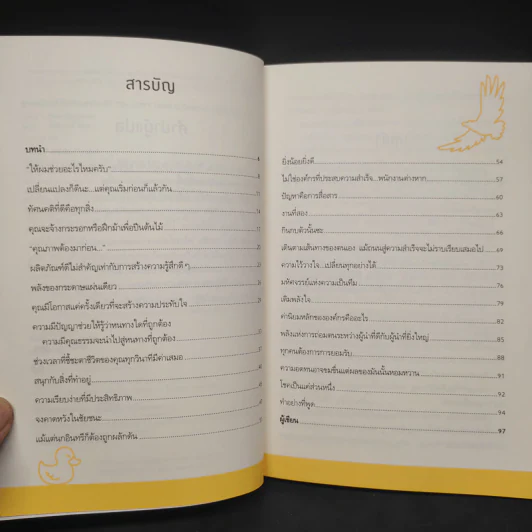 สารบัญ
บทนำ
"ให้ผมช่วยอะไรไหมครับ"
เปลี่ยนแปลงก็ดีนะ...แต่คุณเริ่มก่อนก็แล้วกัน
ทัศนคติที่ดีคือทุกสิ่ง
คุณจะจ้างกระรอกหรือฝึกม้าเพื่อปีนต้นไม้
"คุณภาพต้องมาก่อน..."
ผลิตภัณฑ์ดีไม่สำคัญเท่ากับการสร้างความรู้สึกดีๆ
พลังของกระดาษแผ่นเดียว
คุณมีโอกาสแค่ครั้งเดียวที่จะสร้างความประทับใจ
ความมีปัญญาช่วยให้รู้ว่าหนทางใดที่ถูกต้อง
ความมีคุณธรรมจะนำไปสู่หนทางที่ถูกต้อง
ช่วงเวลาที่ชี้ชะตาชีวิตของคุณทุกวินาทีมีค่าเสมอ
สนุกกับสิ่งที่ทำอยู่
ความเรียบง่ายที่มีประสิทธิภาพ
จงคาดหวังในชัยชนะ
แม้แต่นกอินทรีก็ต้องถูกผลักดัน
ยิ่งน้อยยิ่งดี 54
ไม่ใช่องค์กรที่ประสบความสำเร็จ...พนักงานต่างหาก 57
ปัญหาคือการสื่อสาร 60
งานที่สอง 63
กินกบตัวนั้นซะ 66
เดินตามเส้นทางของตนเอง แม้ถนนสู่ความสำเร็จจะไม่ราบเรียบเสมอไป 69
ความไว้วางใจ...เปลี่ยนทุกอย่างได้ 73
มหัศจรรย์แห่งความเป็นทีม 76
เติมพลังใจ 79
ค่านิยมหลักขององค์กรคืออะไร 82
พลังแห่งการถ่อมตนระหว่างผู้นำที่ดีกับผู้นำที่ยิ่งใหญ่ 85
ทุกคนต้องการการยอมรับ 88
ความอดทนอาจขมขื่นแต่ผลของมันนั้นหอมหวาน 91
โชคเป็นแค่ส่วนหนึ่ง 92
ทำอย่างที่พูด 94
ผู้เขียน 97